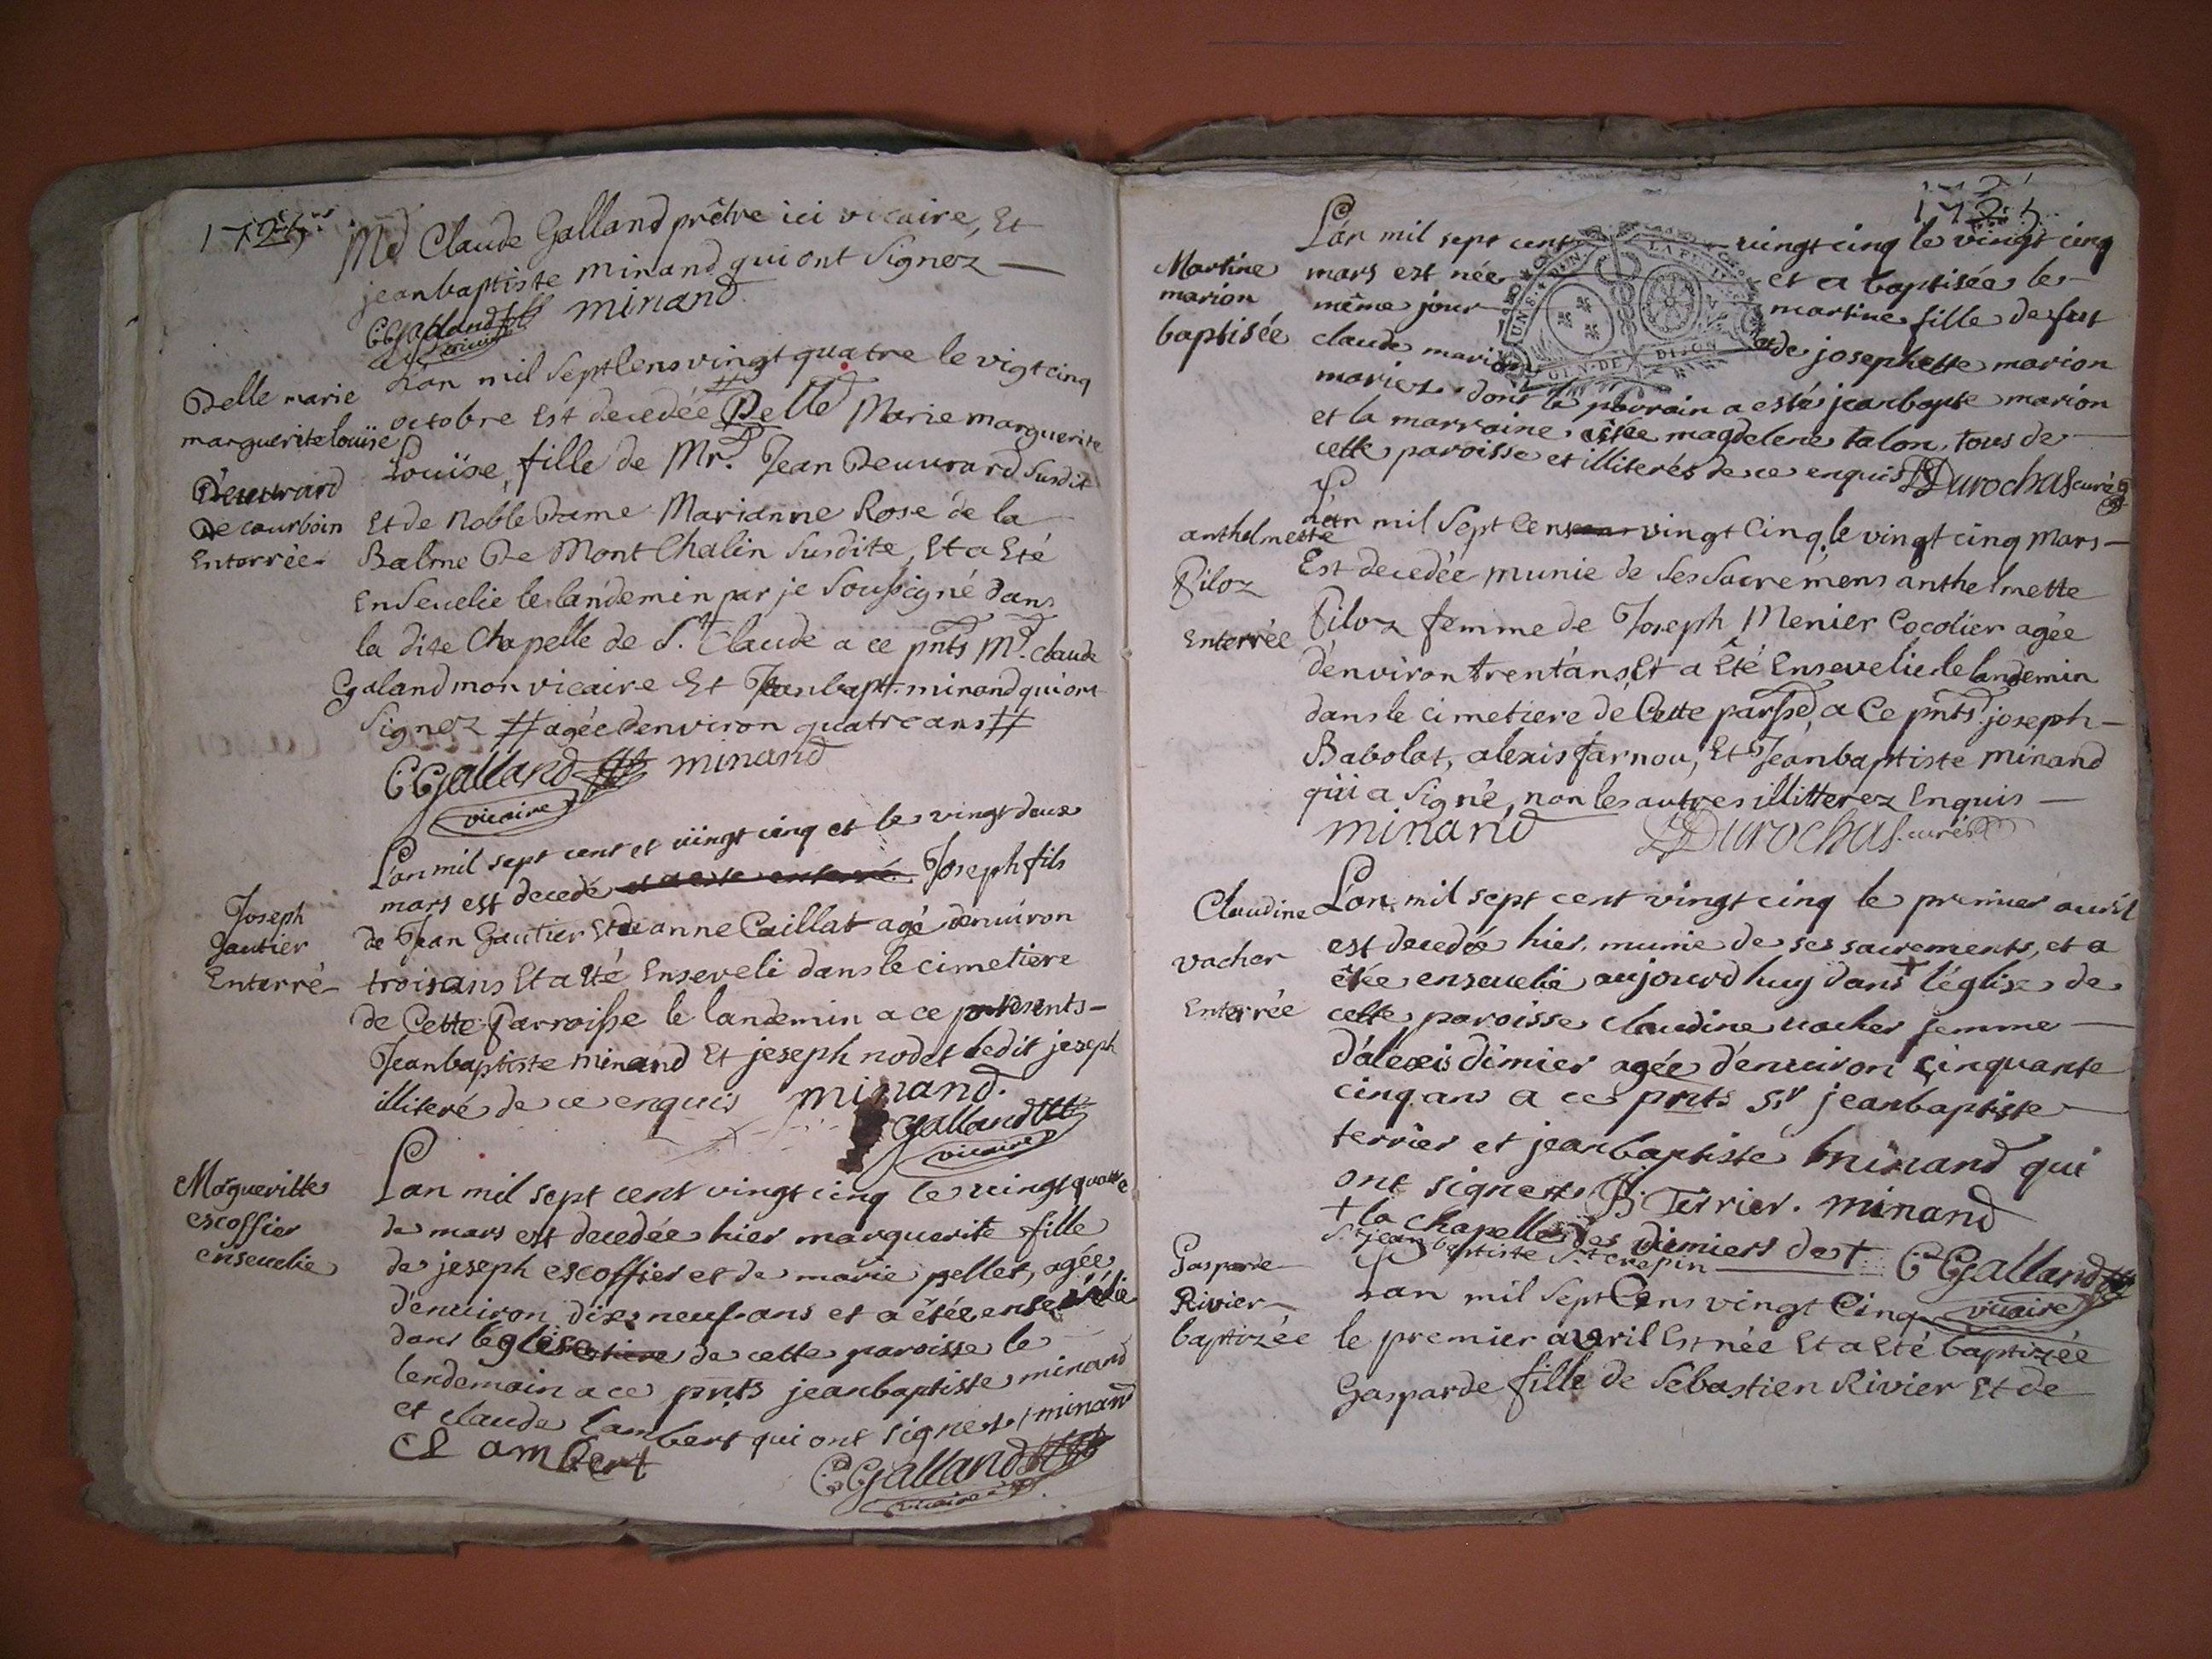 1725
Md Claude Galland prêtre ici vicaire, Et
jeanbaptiste minand qui ont Signez —
CGalland minand
vicaire
Delle marie
marguerite louise
Deuvrard
De courboin
Enterrée
Lan mil Sept Cens vingt quatre le vigt cinq
octobre Est decedée # Delle Marie marguerite
Louïse, fille de Mr. Jean Deuvrard Susdit
Et de Noble Dame Marianne Rose de la
Balme De Mont Chalin Susdite, Et a Eté
Ensevelie le landemin par je Soussigné dans
la dite Chapelle de St. Claude a ce pnts Md. Claude
Galand mon vicaire Et Jeanbapt. minand qui ont
Signez # agée denviron quatre ans #
CGalland minand
vicaire
Joseph
Gautier
Enterré
L'an mil sept cent et vingt cinq et le vingt deux
mars est decedé et a esté enterré Joseph fils
de Jean Gautier Et de anne Caillat agé denviron
trois ans Et a Eté Enseveli dans le cimetiere
de Cette Parroisse le landemin a ce presents —
Jeanbaptiste minand Et joseph nodet ledit joseph
illiteré de ce enquis minand.
CGalland
vicaire
Margueritte
escoffier
ensevelie
L'an mil sept cent vingt cinq le vingt quatre
de mars est decedée hier marguerite fille
de joseph escoffier et de marie pellet, agée
d'enuiron dix neuf ans et a étée ensevélie
dans l'église de cette paroisse le
lendemain a ce pnts jeanbaptiste minand
et claude Lambert qui ont signez / minand
CLambert
CGalland
vicaire
1725
Martine
marion
baptisée
L'an mil sept cent vingt cinq le vingt cinq
mars est née et a baptisée le
même jour martine fille de fut
claude marion et de josephette marion
mariez. dont le parrain a esté jeanbapte marion
et la marraine étée magdelene talon, tous de
cette paroisse et illiterés de ce enquis Durochas curé
GEN. DE DIJON
anthelmette
Piloz
Enterrée
L'an mil Sept Cens vingt Cinq, le vingt cinq mars —
Est decedée munie de Ses Sacremens anthelmette
Piloz femme de Joseph Menier Cocolier agée
d'environ trent'ans, Et a Eté Ensevelie le landemin
dans le cimetiere de Cette parsse, a Ce pnts joseph —
Babolat, alexis farnou, Et Jeanbaptiste minand
qui a Signé, non les autres illitterez Enquis —
minand Durochas. curé
Claudine
vacher
Enterrée
L'an mil sept cent vingt cinq le premier auril
est decedée hier. munie de ses sacrements, et a
étée enseuelie aujourd huy dans + l'églises de
cette paroisse claudine uacher femme —
d'alexis dimier agée d'enuiron cinquante
cinq ans a ce pnts sr jeanbaptiste —
terrier et jeanbaptiste minand qui
ont signez JB Terrier. minand
+ la chapelle des dimiers de +
St jean baptiste St crepin — CGalland
vicaire
Gasparde
Rivier
baptizée
Lan mil Sept Cens vingt Cinq
le premier avril Est née Et a Eté baptizée
Gasparde fille de Sebastien Rivier Et de